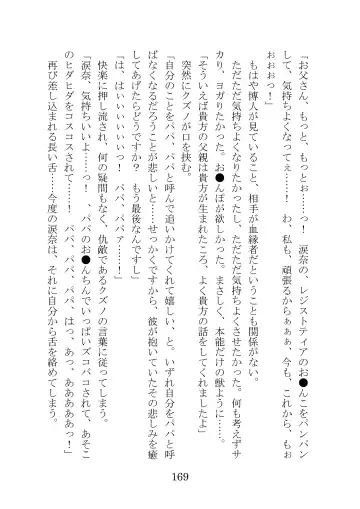 「お父さん、もっと、もっとぉ……っ！　涙奈の、レジスティアのお●んこをパンパン
して、気持ちよくなってぇ……！　わ、私も、頑張るからぁぁぁ、今も、これから、もぉ
ぉぉぉっ！」
もはや博人が見ていること、相手が血縁者だということも関係がない。
ただただ気持ちよくなりたかったし、ただただ気持ちよくさせたかった。何も考えずサ
カり、ヨガりたかった。お●んぽが欲しかった。まさしく、本能だけの獣ように……。
「そういえば貴方の父親は貴方が生まれたころ、よく貴方の話をしてくれましたよ」
突然にクズノが口を挟む。
「自分のことをパパ、パパと呼んで追いかけてくれて嬉しい、と。いずれ自分をパパと呼
ばなくなるだろうことが悲しいと……せっかくですから、彼が抱いていたその悲しみを癒
してあげたらどうですか？　もう最後なんですし」
「は、はぃぃぃぃぃっ！　パパ、パパァ……！」
快楽に押し流され、何の疑問もなく、仇敵であるクズノの言葉に従ってしまう。
「涙奈、気持ちいいよ……っ！　、パパのお●んちんでいっぱいズコバコされて、あそこ
のヒダヒダをコスコスされて……！　パパ、パパ、パパ、はっ、あっ、あああああっ！」
再び差し込まれる長い舌……今度の涙奈は、それに自分から舌を絡めてしまう。
169